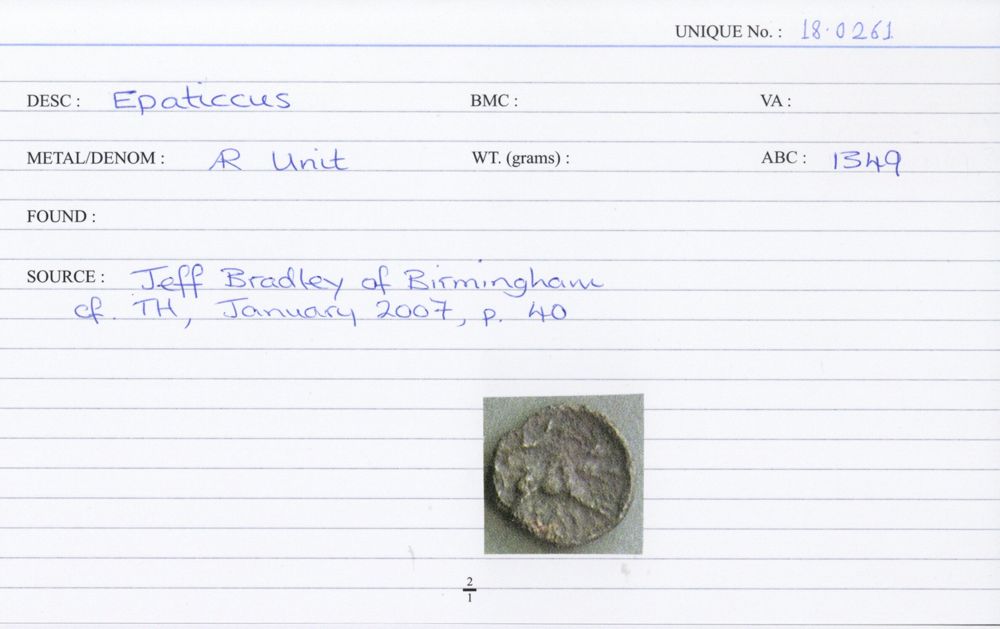 UNIQUE No. : 18.0261
DESC : Epaticcus BMC : VA :
METAL/DENOM : AR Unit WT. (grams) : ABC : 1349
FOUND :
SOURCE : Jeff Bradley of Birmingham
cf. TH, January 2007, p. 40
2
1